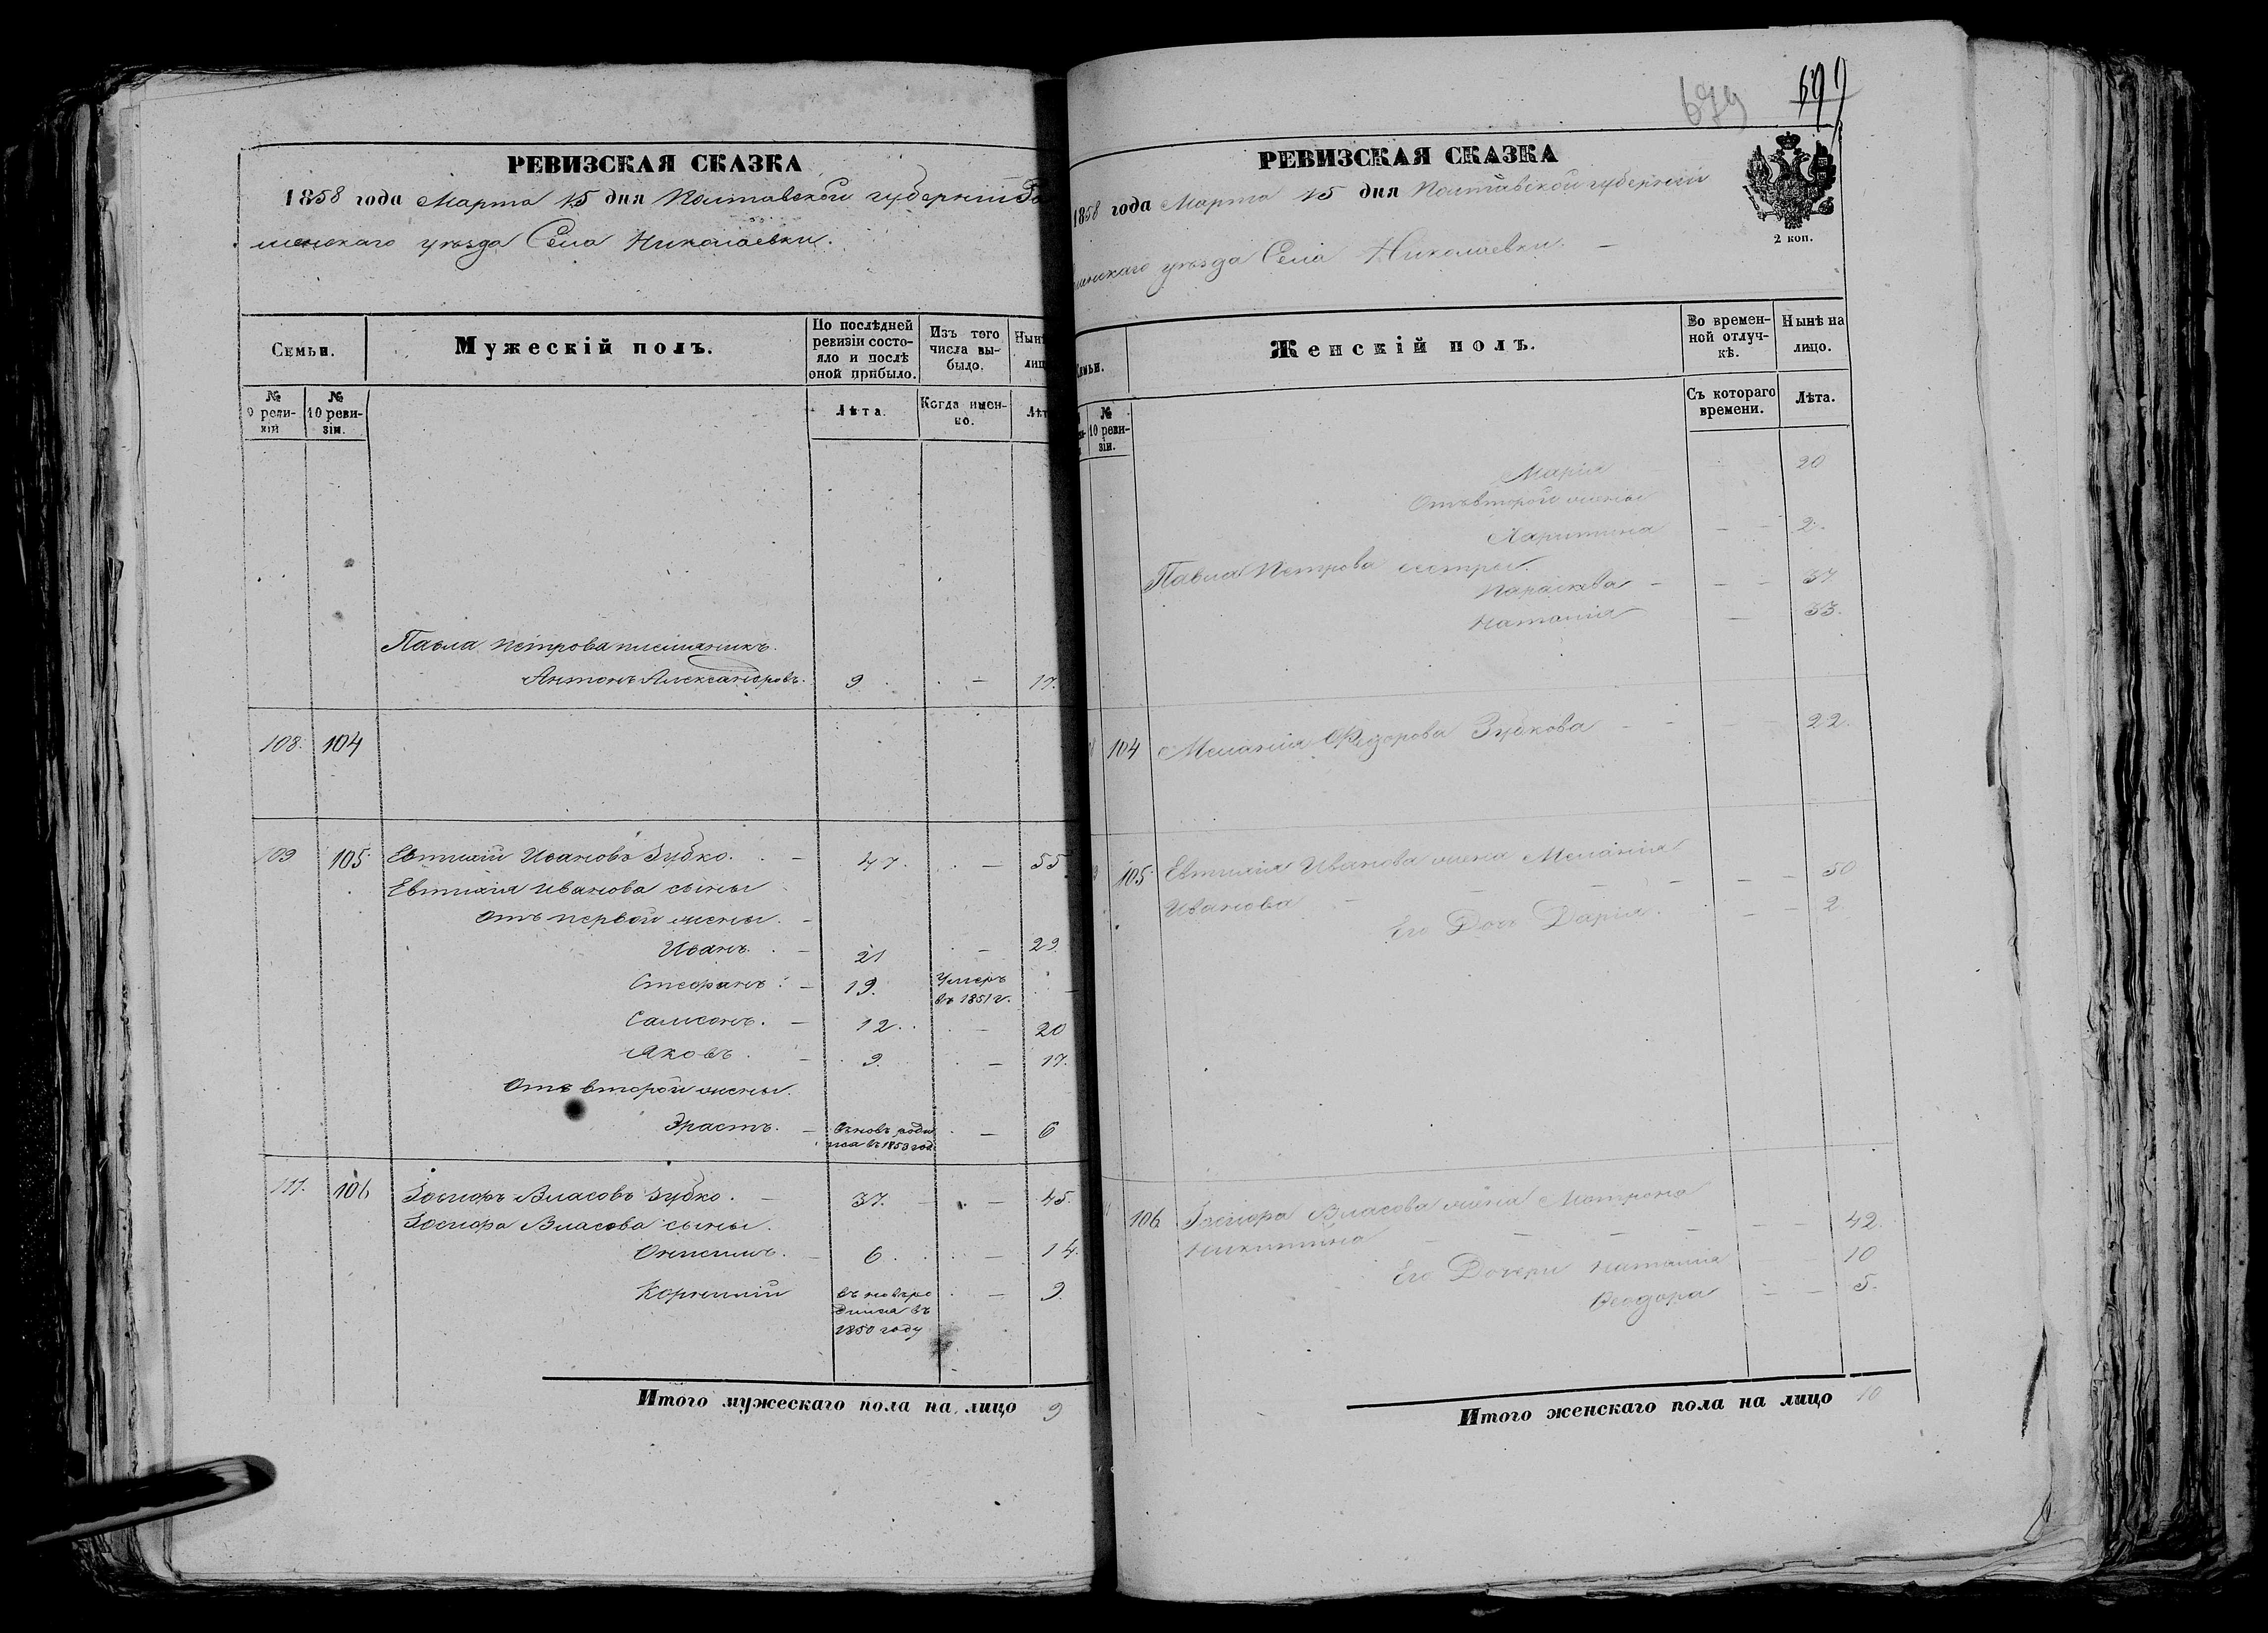 РЕВИЗСКАЯ СКАЗКА
1858 года Марта 15 дня Полтавской губернии Ро
менскаго уѣзда Села Николаевки.
Семьи.
Мужескій полъ.
По послѣдней ревизіи состояло и послѣ оной прибыло.
Изъ того числа выбыло.
Нынѣ лиц
№ 9 ревизіи
№ 10 ревизіи.
Лѣта.
Когда именно.
Лѣт
Павла Петрова племяникъ.
Антонъ Александровъ. 9 — 17.
108. 104
109 105 Евтихій Ивановъ Зубко. — 47. — 55
Евтихія Иванова сыны
отъ первой жены. —
Иванъ. — 21 — 29.
Стефанъ. — 19. Умеръ въ 1851 г. —
Самсонъ. — 12. — 20
Яковъ. — 9. — 17.
Отъ второй жены.
Эрастъ. — 6
111. 106 Іосифъ Власовъ Зубко. — 37. — 45.
Іосифа Власова сыны.
Онисимъ. — 6. — 14.
Корнилій въ новѣро — 9.
дился въ
1850 году
Итого мужескаго пола на лицо 9
679 699
РЕВИЗСКАЯ СКАЗКА
1858 года Марта 15 дня Полтавской губерніи
менскаго уѣзда Села Николаевки. —
2 коп.
емьи.
Женскій полъ.
Во временной отлучкѣ.
Нынѣ на лицо.
№ 10 ревизіи.
Съ котораго времени.
Лѣта.
Марія 20
Отъ второй жены
Харитина — — 2.
Павла Петрова сестры.
Параскева — — — 37
Наталія — 33.
104 Меланія Федорова Зубкова — — 22.
105 Евтихія Иванова жена Меланія
Иванова — — — — — — 50
Его Дочь Дарія. — — 2.
106 Іосифа Власова жена Матрона
Никитина — — — — — — 42.
Его Дочери Наталія 10
Феодора — — 5.
Итого женскаго пола на лицо 10